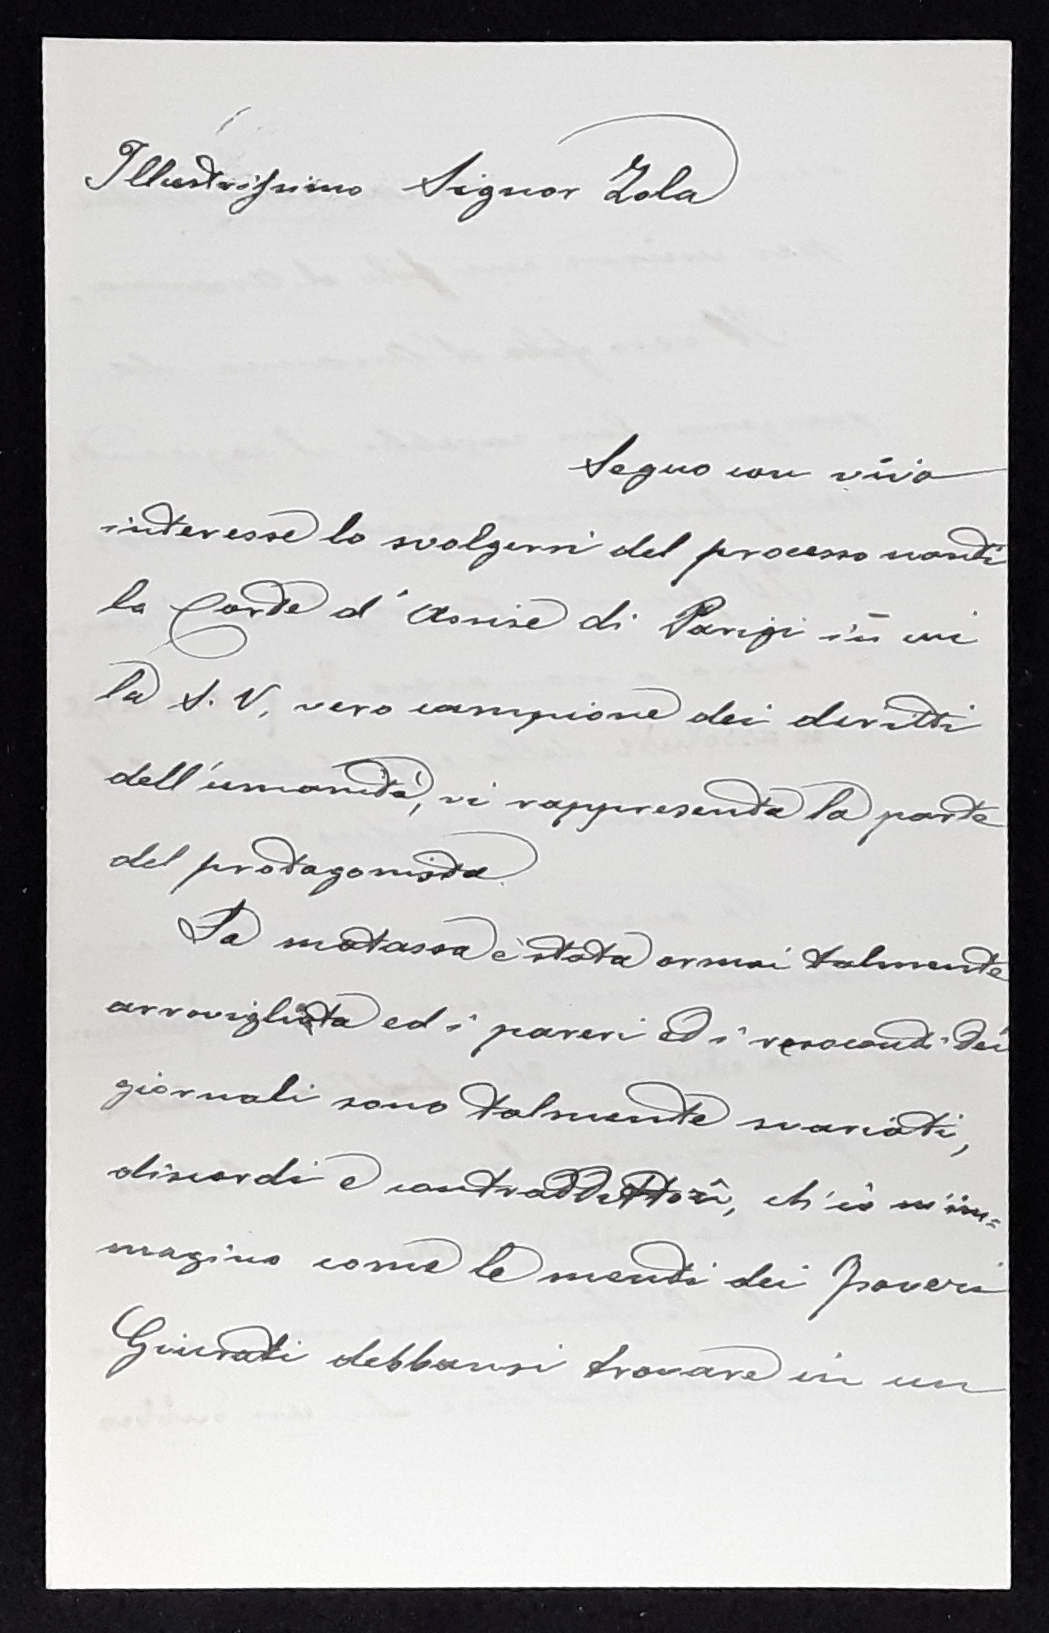 Illustrissimo Signor Zola
Seguo con vivo
interesse lo svolgersi del processo nanti
la Corte d'Assise di Parigi in cui
la S. V., vero campione dei diritti
dell'umanità, vi rappresenta la parte
del protagonista.
La matassa è stata ormai talmente
arrovigliata ed i pareri ed i resoconti dei
giornali sono talmente svariati,
discordi e contraddittorî, ch'io m'im=
magino come le menti dei poveri
Giurati debbansi trovare in un